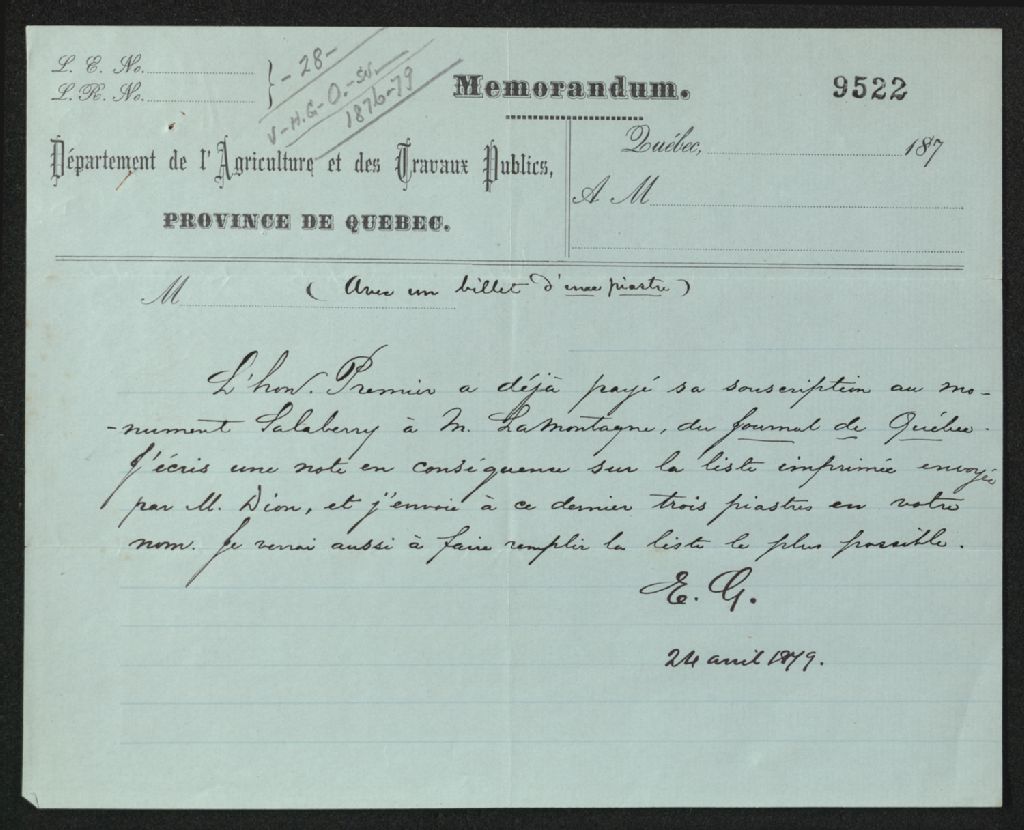 L. E. No.
L. R. No.
- 28 -
V-H.G-O.-
1876-79
Memorandum.
9522
Département de l'Agriculture et des Travaux Publics,
PROVINCE DE QUEBEC.
Québec, 187
A M
M
(Avec un billet d'une piastre)
L'hon. Premier a déjà payé sa souscription au mo-
-nument Salaberry à M. LaMontagne, du Journal de Québec.
J'écris une note en conséquence sur la liste imprimée envoyée
par M. Dion, et j'envoie à ce dernier trois piastres en votre
nom. Je verrai aussi à faire remplir la liste le plus possible.
E. G.
24 avril 1879.